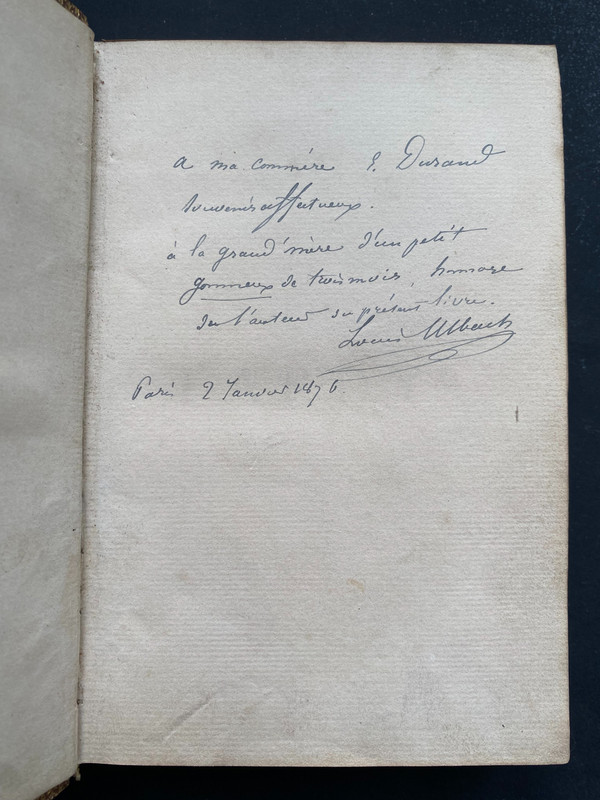 A ma commère E. Durand
souvenirs affectueux.
à la grand'mère d'un petit
gommeux de trois mois, hommage
de l'auteur du présent livre.
Louis Ulbach
Paris 2 Janvier 1876.